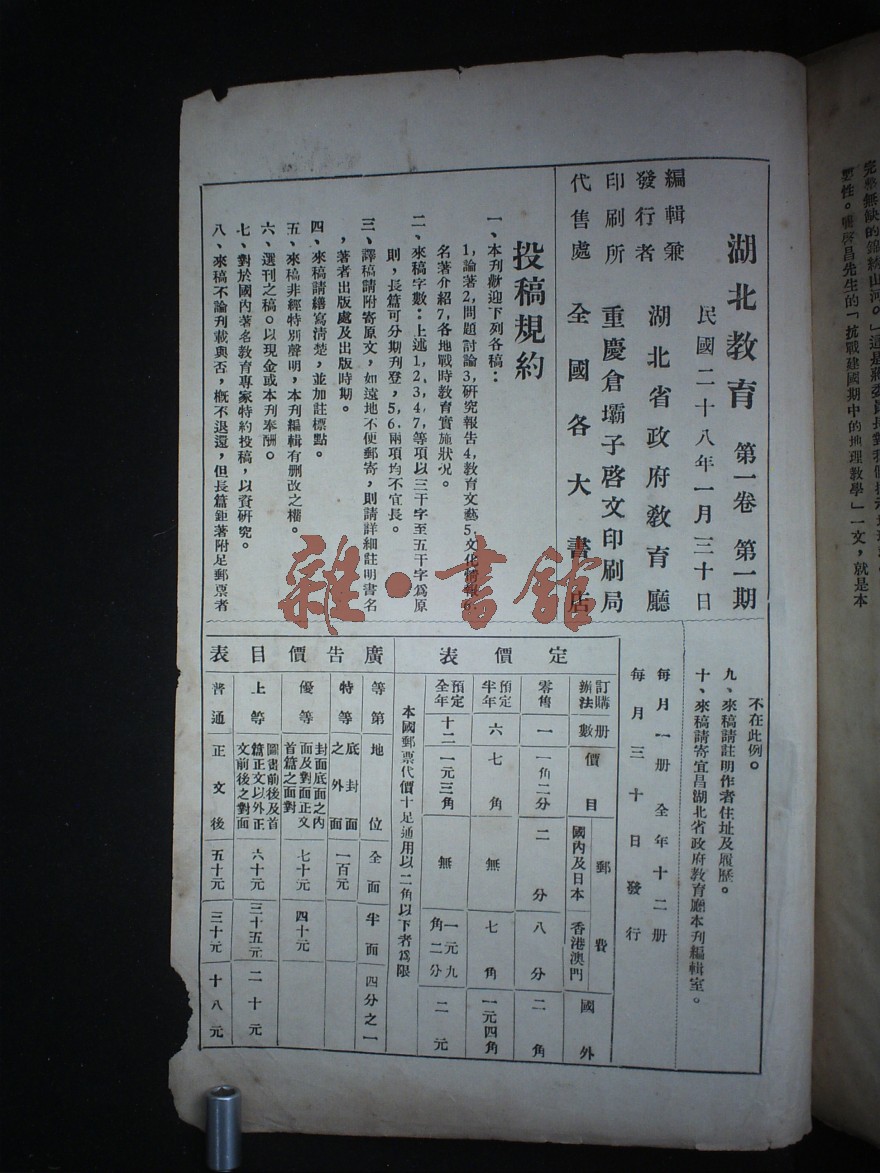 湖北教育 第一卷 第一期
民國二十八年一月三十日
編輯兼
發行者 湖北省政府教育廳
印刷所 重慶倉壩子啓文印刷局
代售處 全國各大書店
投稿規約
一、本刊歡迎下列各稿：
1,論著2,問題討論3,研究報告4,教育文藝5,文化情報6,
名著介紹7,各地戰時教育實施狀況。
二、來稿字數：上述1,2,3,4,7,等項以三千字至五千字爲原
則，長篇可分期刊登，5,6.兩項均不宜長。
三、譯稿請附寄原文，如遠地不便郵寄，則請詳細註明書名
，著者出版處及出版時期。
四、來稿請繕寫清楚，並加註標點。
五、來稿非經特別聲明，本刊編輯有删改之權。
六、選刊之稿。以現金或本刊奉酬。
七、對於國內著名教育專家特約投稿，以資研究。
八、來稿不論刊載與否，槪不退還，但長篇鉅著附足郵票者
不在此例。
九、來稿請註明作者住址及履歷。
十、來稿請寄宜昌湖北省政府教育廳本刊編輯室。
每月一册全年十二册
每月三十日發行
定價表
訂購辦法 册數 價目 郵費 國內及日本 香港澳門 國外
零售 一 一角二分 二分 八分 二角
預定半年 六 七角 無 七角 一元四角
預定全年 十二 一元三角 無 一元九角二分 二元
本國郵票代價十足通用以二角以下者爲限
廣告價目表
等第 地位 全面 半面 四分之一
特等 底封面之外面 一百元
優等 封面底面之內面及對面正文首篇之面對 七十元 四十元
上等 圖畫前後及首篇正文以外正文前後之對面 六十元 三十五元 二十元
普通 正文後 五十元 三十元 十八元
雜·書館
完整無缺的錦繡山河。」這是蔣委員長對我們
要性。
昌先生的「抗戰建國期中的地理教學」一文，就是本